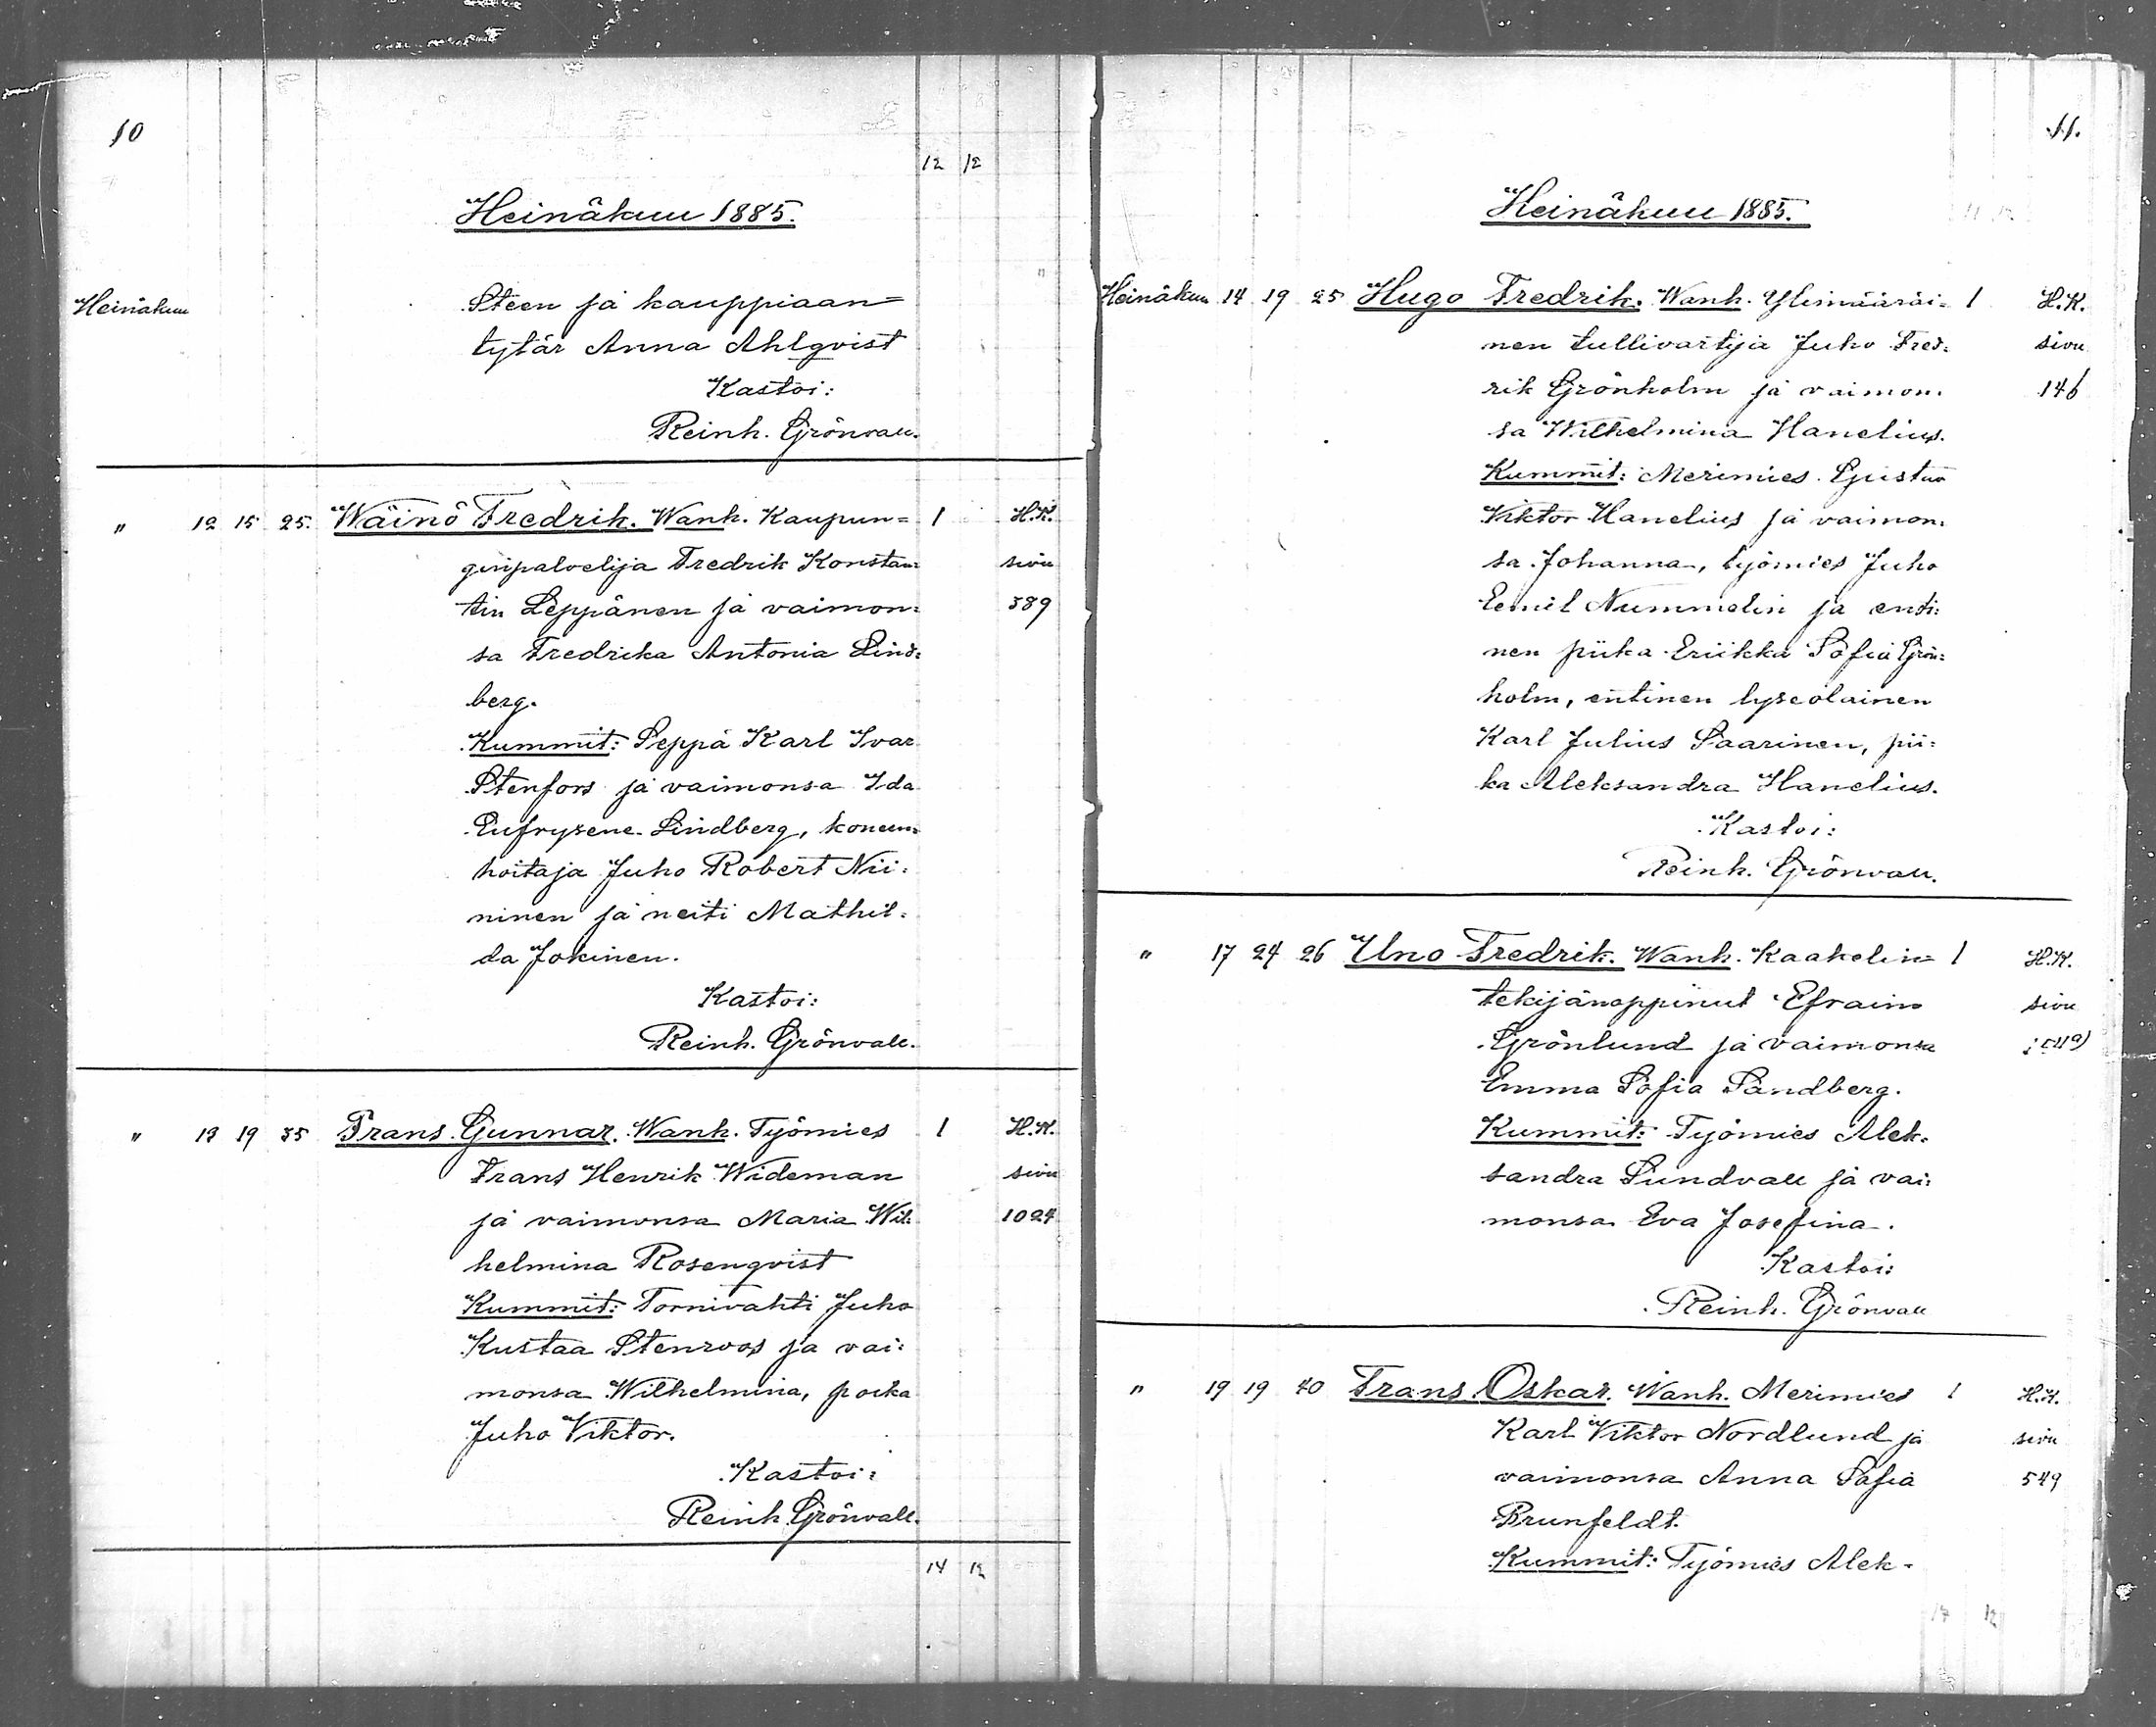 10
12 12
Heinäkuu 1885.
Heinäkuu Steen ja kauppiaan=
tytär Anna Ahlqvist
Kastoi:
Reinh. Grönvall.
" 12 15 25. Wäinö Fredrik. Wanh. Kaupun= 1 H.K.
ginpalvelija Fredrik Konstan= sivu
tin Leppänen ja vaimon= 389
sa Fredrika Antonia Lind=
berg.
Kummit: Seppä Karl Ivar
Stenfors ja vaimonsa Ida
Eufrysene Lindberg, koneen=
hoitaja Juho Robert Nii=
ninen ja neiti Mathil=
da Jokinen.
Kastoi:
Reinh. Grönvall.
" 13 19 35 Frans Gunnar. Wanh. Työmies 1 H.K.
Frans Henrik Wideman sivu
ja vaimonsa Maria Wil= 1024
helmina Rosenqvist
Kummit: Tornivahti Juho
Kustaa Stenroos ja vai=
monsa Wilhelmina, poika
Juho Viktor.
Kastoi:
Reinh. Grönvall.
14 12
11.
Heinäkuu 1885.
Heinäkuu 14 19 25 Hugo Fredrik. Wanh. Ylimääräi= 1 H.K.
nen tullivartija Juho Fred= sivu
rik Grönholm ja vaimon= 146
sa Wilhelmina Hanelius.
Kummit: Merimies Gustav
Viktor Hanelius ja vaimon=
sa Johanna, työmies Juho
Eemil Nummelin ja enti=
nen piika Eriikka Sofia Grön=
holm, entinen lyseolainen
Karl Julius Saarinen, pii=
ka Aleksandra Hanelius.
Kastoi:
Reinh. Grönvall.
" 17 24 26 Uno Fredrik. Wanh. Kaakelin= 1 H.K.
tekijänoppinut Efraim sivu
Grönlund ja vaimonsa
Emma Sofia Sandberg.
Kummit: Työmies Alek=
sandra Sundvall ja vai=
monsa Eva Josefina.
Kastoi:
Reinh. Grönvall
" 19 19 40 Frans Oskar. Wanh. Merimies 1 H.K.
Karl Viktor Nordlund ja sivu
vaimonsa Anna Sofia 549
Brunfeldt.
Kummit: Työmies Alek-
17 12